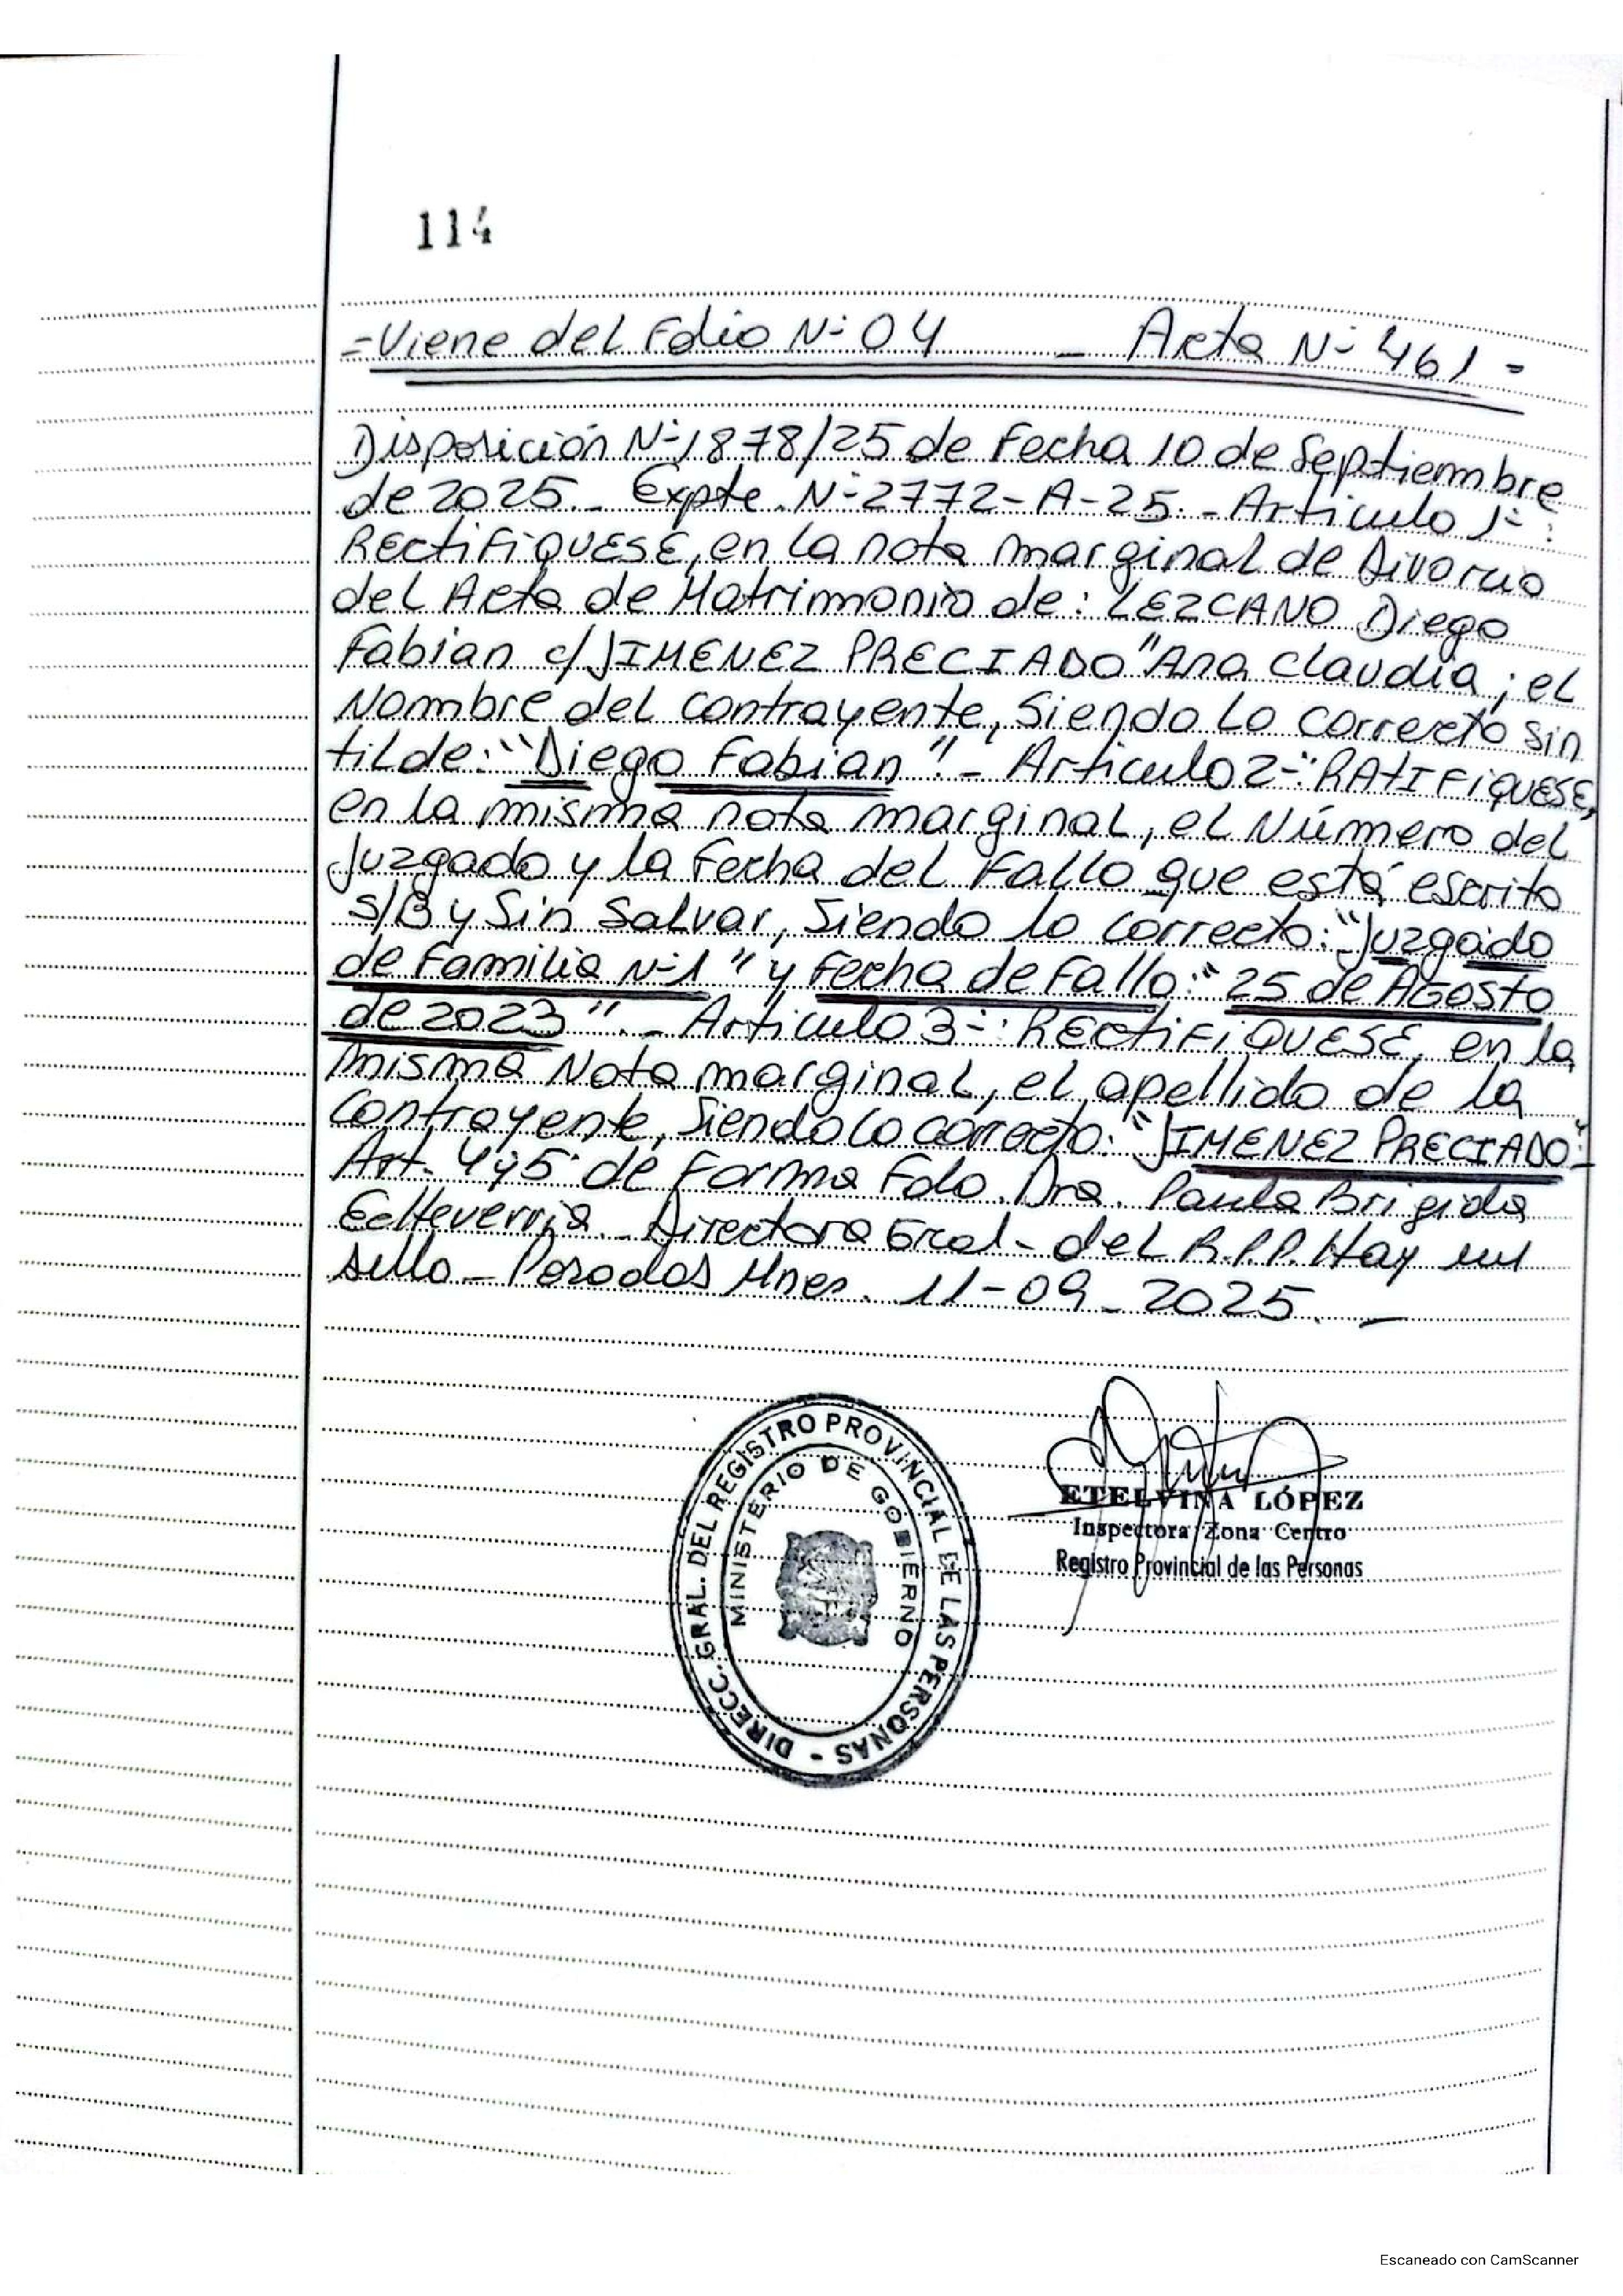 114
=Viene del Folio N-: 04 - Acta N-: 461 -
Disposición N-: 1878/25 de Fecha 10 de Septiembre
de 2025.- Expte. N-: 2772-A-25.- Articulo 1-:
RECTIFIQUESE, en la nota marginal de Divorcio
del Acta de Matrimonio de: LEZCANO Diego
Fabian c/ JIMENEZ PRECIADO "Ana Claudia; el
Nombre del contrayente, Siendo Lo correcto sin
tilde: "Diego Fabian".- Articulo 2-: RATIFIQUESE,
en la misma nota marginal, el Número del
Juzgado y la Fecha del Fallo que está escrito
S/B y Sin Salvar, Siendo lo correcto: "Juzgado
de Familia N-1" y Fecha de Fallo: "25 de Agosto
de 2023".- Articulo 3-: RECTIFIQUESE, en la
misma Nota marginal, el apellido de la
Contrayente, Siendo lo correcto: "JIMENEZ PRECIADO".-
Art. 4y5 de Forma Fdo. Dra. Paula Brigida
Echeverria - Directora Gral - del R.P.P. Hay un
sello - Posadas Mnes. 11-09-2025. -
DIRECC. GRAL. DEL REGISTRO PROVINCIAL DE LAS PERSONAS -
MINISTERIO DE GOBIERNO
ETELVINA LÓPEZ
Inspectora Zona Centro
Registro Provincial de las Personas
Escaneado con CamScanner